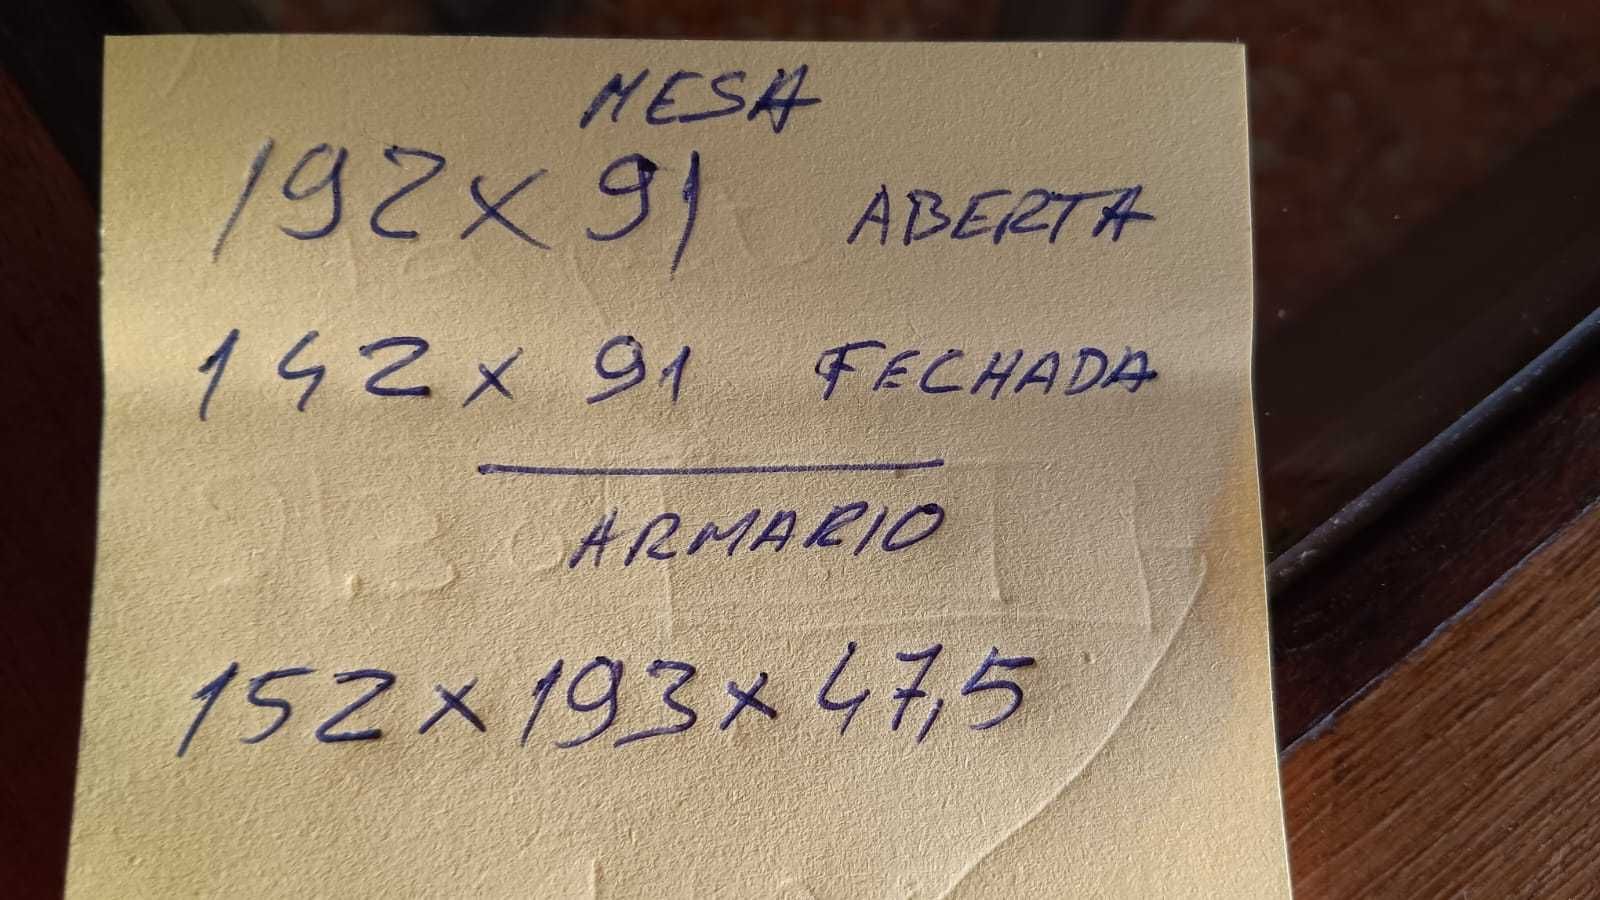 MESA
192 x 91 ABERTA
142 x 91 FECHADA
ARMARIO
152 x 193 x 47,5